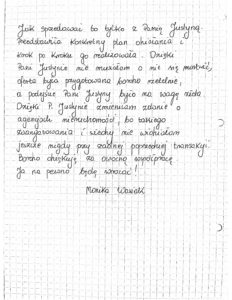 Jak sprzedawać to tylko z Panią Justyną.
Przedstawiła konkretny plan działania i
krok po kroku go realizowała. Dzięki
Pani Justynie nie musiałam o nic się martwić,
oferta była przygotowana bardzo rzetelnie,
a podejście Pani Justyny było na wagę złota.
Dzięki P. Justynie zmieniłam zdanie o
agencjach nieruchomości, bo takiego
zaangażowania i wiedzy nie widziałam
jeszcze nigdy przy żadnej poprzedniej transakcji.
Bardzo dziękuję za owocną współpracę.
Ja na pewno będę wracać!
Monika